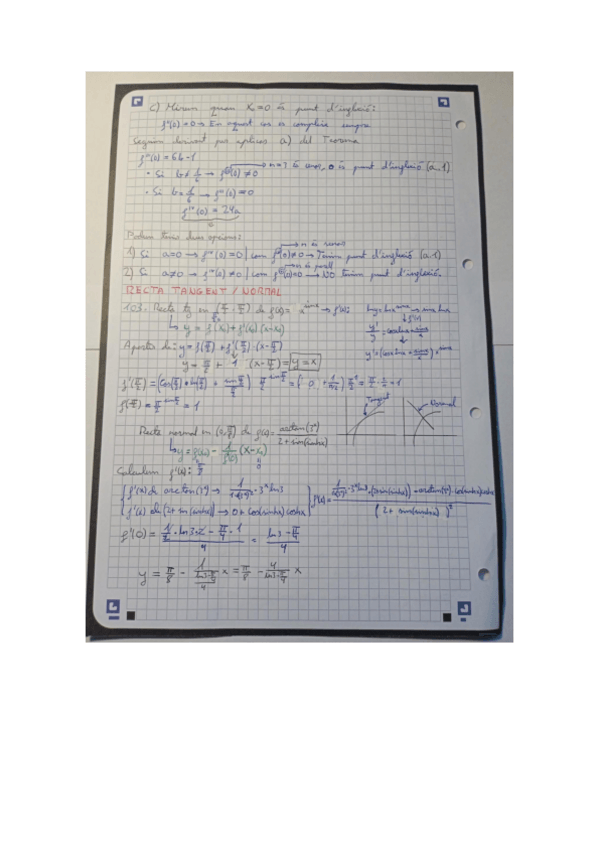 c) Mirem quan x₀=0 és punt d'inflexió:
f''(0)=0 → En aquest cas es compleix sempre
Seguim derivant per aplicar a) del Teorema
f'''(0) = 6b-1
• Si b≠1/6 → f'''(0) ≠0 → n=3 és senar, 0 és punt d'inflexió (a.1)
• Si b=1/6 → f'''(0)=0
f^IV(0) = 24a
Podem tenir dues opcions:
1) Si a=0 → f^IV(0)=0 | com → n és senar → Tenim punt d'inflexió (a.1)
2) Si a≠0 → f^IV(0) ≠0 | com → n és parell → NO tenim punt d'inflexió.
RECTA TANGENT / NORMAL
103. Recta tg en (π/2, π/2) de f(x)= x^sinx → f'(x):
ln y = ln x^sinx → sinx lnx
y'/y = cosx lnx + sinx/x
y' = (cosx lnx + sinx/x) x^sinx
↳ y = f(x₀) + f'(x₀) (x-x₀)
A partir de: y = f(π/2) + f'(π/2) · (x-π/2)
y = π/2 + 1 · (x-π/2) = y = x
f'(π/2) = (cos(π/2) · ln(π/2) + sin(π/2)/π/2) · π/2^sin π/2 = (0 + 1/π/2) π/2 = 1
f(π/2) = π/2^sin π/2 = 1
Tangent
Normal
Recta normal en (0, π/8) de f(x) = arctan(3^x)/2+sin(sinhx)
↳ y = f(x₀) - 1/f'(x₀) (x-x₀)
Calculem f'(x):
f'(x) de arctan(3^x) → 1/1+(3^x)² · 3^x ln3
f'(x) de (2+sin(sinhx)) → 0 + cos(sinhx) coshx
f'(x) = 1/1+(3^x)² · 3^x ln3 · (2+sin(sinhx)) - arctan(3^x) · cos(sinhx) coshx / (2+sin(sinhx))²
f'(0) = 1/2 · ln3 · 2 - π/4 · 1 / 4 = ln3 - π/4 / 4
y = π/8 - 1/(ln3-π/4 / 4) x = π/8 - 4/ln3-π/4 x